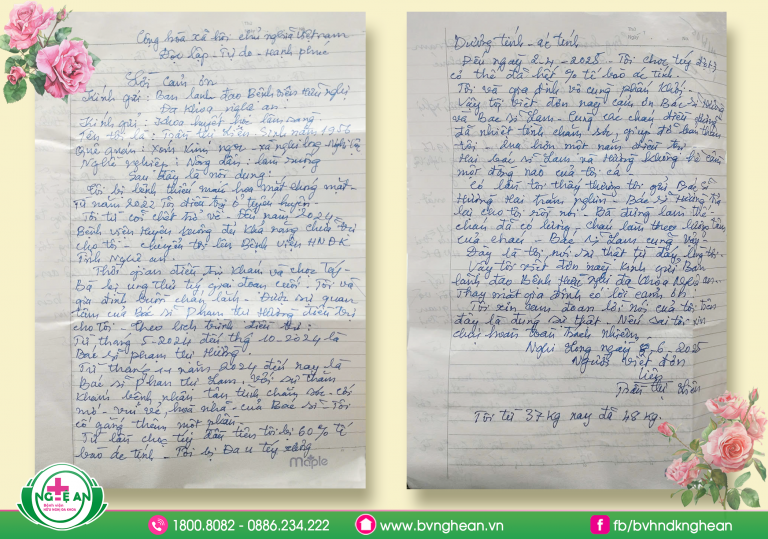 Cộng hòa xã hội chủ nghĩa Việt nam
Độc lập - Tự do - Hạnh phúc
Lời cảm ơn
Kính gửi: Ban lãnh đạo Bệnh viện Hữu nghị
Đa Khoa nghệ an.
Kính gửi: Khoa huyết học lâm sàng
Tên tôi là: Trần thị Liên - Sinh năm 1956
Quê quán: Xóm Kim ngọc - xã nghi long - Nghi Lộc
Nghề nghiệp: Nông dân: làm ruộng
Sau đây là nội dung:
Tôi bị bệnh thiếu máu hoa mắt chóng mặt -
từ năm 2022 Tôi điều trị ở tuyến huyện -
Tôi từ cõi chết trở về - Đến năm 2024 -
Bệnh viện Huyện không đủ Khả năng chữa trị
cho tôi - chuyển tôi lên Bệnh viện HNĐK
Tỉnh Nghệ an -
Thời gian điều trị Khám và chọc tủy -
Bà bị ung thư tủy giai đoạn cuối - Tôi và
gia đình buồn chán lắm - Được sự quan
tâm của Bác sĩ Phan thị Hường điều trị
cho tôi - theo lịch trình điều trị:
Từ tháng 5-2024 đến thg 10-2024 là
Bác sĩ phan thị Hường
Từ tháng 11 năm 2024 đến nay là
Bác sĩ Phan thị Lam, với sự thăm
khám bệnh nhân tận tình chăm sóc - cởi
mở - vui vẻ, hoà nhã - của Bác sĩ - Tôi
cố gắng thêm một phần -
Từ lần chọc tủy đầu tiên tôi bị 60% tế
bào ác tính - Tôi bị Đa u tủy xương
Maple
Dương tính - ác tính
Đến ngày 2-4-2025 - Tôi chọc tủy
cơ thể đã hết % tế bào ác tính.
Tôi và gia đình vô cùng phấn Khởi -
Vậy tôi viết đơn này cảm ơn Bác sĩ Hường
và Bác sĩ Lam - Cùng các cháu điều dưỡng
đã nhiệt tình chăm sóc, giúp đỡ bản thân
tôi - hơn một năm điều trị
Hai bác sĩ Lam và Hường Không hề cầm
một đồng nào của tôi cả -
Có lần tôi thấy thương tôi gửi Bác sĩ
Hường Hai trăm nghìn - Bác sĩ Hường trả
lại cho tôi rồi nói - Bà đừng làm thế -
cháu đã có lương - cháu làm theo lương tâm
của cháu - Bác sĩ Lam cũng vậy -
Đây là tôi nói sự thật từ đáy lòng tôi -
Vậy tôi viết đơn này Kính gửi Ban
lãnh đạo Bệnh Hữu nghị đa Khoa Nghệ an -
Thay mặt gia đình có lời cảm ơn.
Tôi xin cam đoan lời nói của tôi trên
đây là đúng sự thật - Nếu sai tôi xin
chịu hoàn toàn trách nhiệm.
Nghi Long ngày 5-6-2025
Người viết đơn
Liên
Trần thị Liên
Tôi từ 37kg nay đã 48kg.
NGHỆ AN
BỆNH VIỆN
HỮU NGHỊ ĐA KHOA
1800.8082 - 0886.234.222
www.bvnghean.vn
fb/bvhndknghean